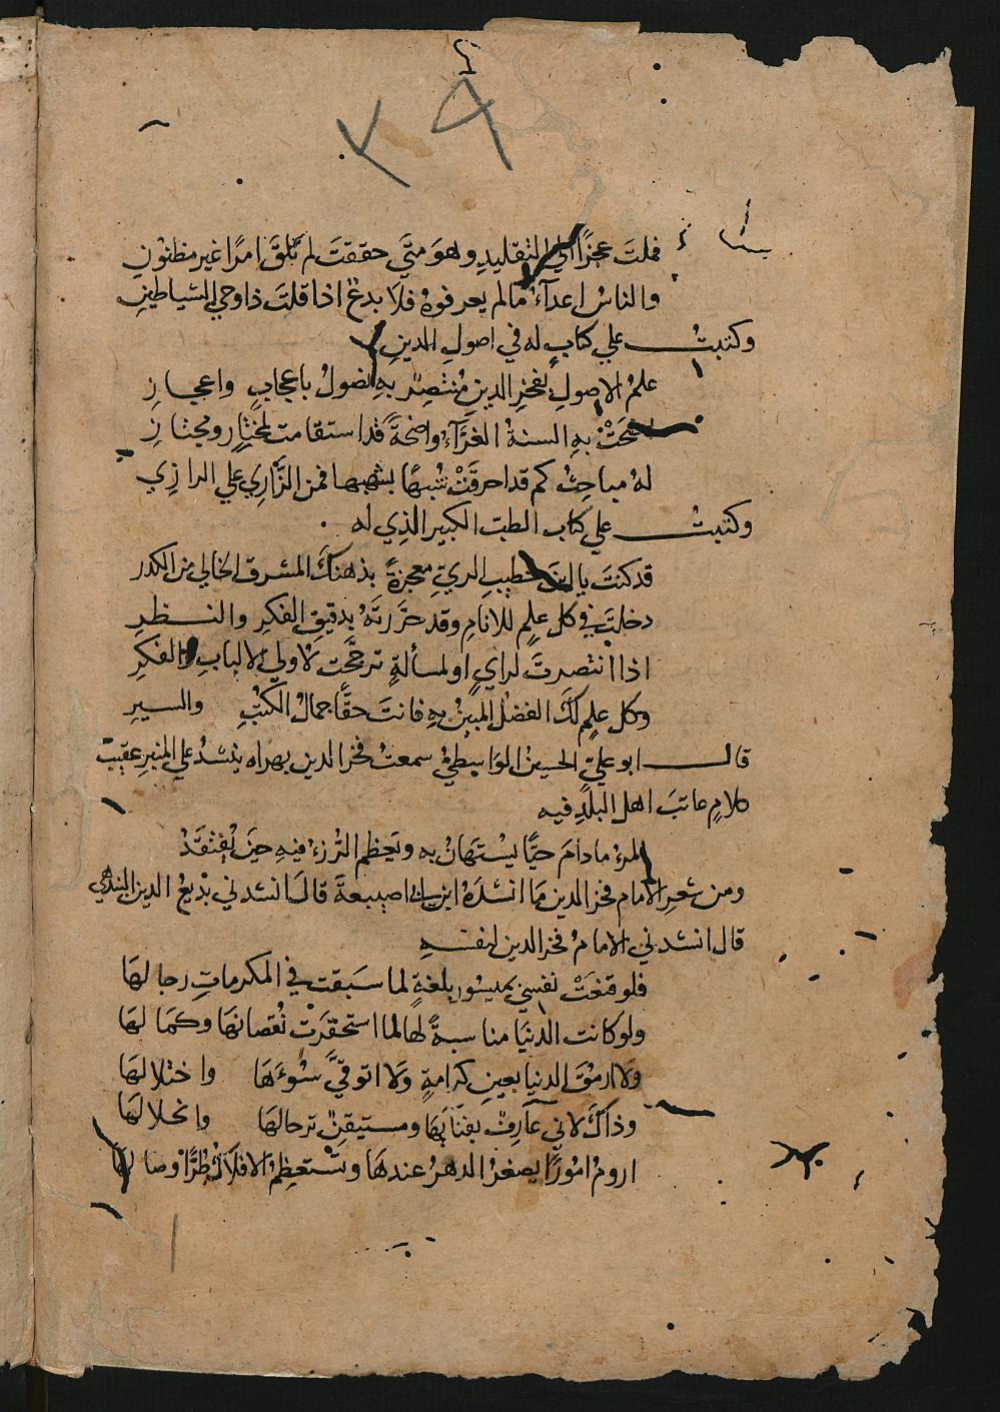 ٣٩
فملت عجزًا الي التقليدِ وهوَ متَي حققتَ لم تلقَ امرًا غير مظنونِ
والناسُ اعدآءُ ما لم يعرفوهُ فلا بدعٌ اذا قلتَ ذا وحي الشياطينِ
وكتبتُ علي كتابٍ له في اصولِ الدينِ
علمُ الاصولِ بفخرِ الدينِ مُنتصِرٌ بهِ نصولُ باعجابٍ واعجازِ
اضحَتْ بهِ السنةُ الغَرَّآءُ واضحَةً قد استقامت لمختارٍ ومجتازِ
لهُ مباحِثُ كم قد احرقَتْ شُبهًا بشهبها فمن الزَّارِي علي الرازِي
وكتبتُ علي كتاب الطبّ الكبير الذِي له
قد كنتَ يا ابنَ خطيبِ الريّ معجزةً بذهنكَ المشرق الخالي من الكدر
دخلتَ في كل علمٍ للانامِ وقد حَرَّرتَهُ بدقيقِ الفكرِ والنــظرِ
اذا انتصرتَ لرايٍ او لمسألةٍ ترجَّحت لاولي الالبابِ والفكرِ
وكل علمٍ لكَ الفضلُ المبينُ بهِ فانتَ حقًا جمالُ الكتُبِ والسيرِ
قال ابو عليّ الحسينُ الواسِطيُ سمعتُ فخر الدين بهراه ينشدُ علي المنبرِ عقيبَ
كلامٍ عاتبَ اهل البلدِ فيه
المرءُ ما دامَ حيًّا يُسْتَهَانُ بهِ ويَعظم الرُزءُ فيهِ حينَ يُفتقَدُ
ومن شعرِ الامام فخر الدين مما انشدَهُ ابن ابي اصيبعةَ قالَ انشدني بَدِيعُ الدين البندهي
قال انشدني الامامُ فخر الدين لنفسهِ
فلو قنعَتْ نفسِي بميسُور بلغةٍ لما سَبقت في المكرماتِ رجالهَا
ولو كانت الدنيَا مناسبةً لها لما استحقرَتْ نُقصانهَا وكمَا لهَا
ولا ارمُقُ الدنيا بعينِ كرامةٍ وَلا اتوقيَّ سُوءَهَا واختلالهَا
وذاكَ لاني عَارِفٌ بفنَائِهَا ومستيقنٌ ترحالهَا وانحلالهَا
ارومُ امُورًا يصغرُ الدهرُ عندهَا وتستعظمُ الافلاكُ طُرًّا وصالهَا